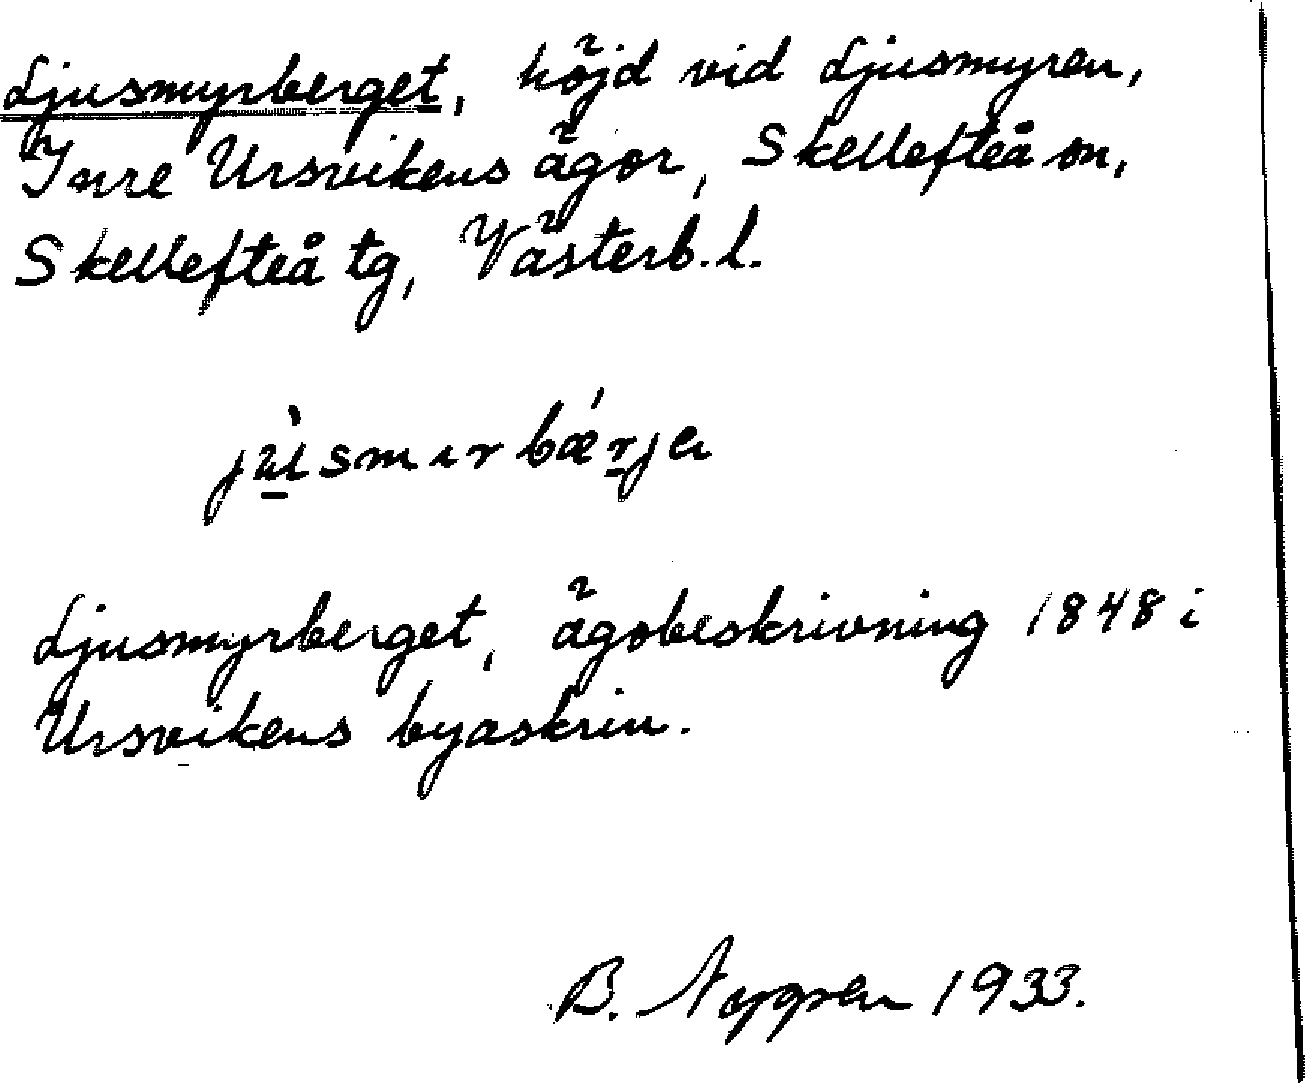 Ljusmyrberget, höjd vid Ljusmyren,
Inre Ursvikens ägor, Skellefteå sn,
Skellefteå tg, Västerb. l.
Ljusmyrberget, ägobeskrivning 1848 i
Ursvikens byaskrin.
B. 1933.